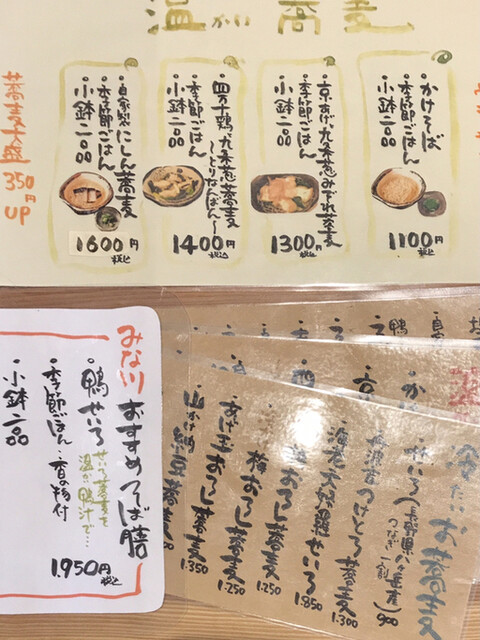 温かい蕎麦
・かけそば
・季節ごはん
・小鉢二品
1100円
税込
・京あげ九条葱みぞれ蕎麦
・季節ごはん
・小鉢二品
1300円
税込
・四万十鶏九条葱蕎麦
〜とりなんばん〜
・季節ごはん
・小鉢二品
1400円
税込
・自家製にしん蕎麦
・季節ごはん
・小鉢二品
1600円
税込
蕎麦大盛
350円
UP
みな川おすすめそば膳
・鴨せいろ
せいろ蕎麦を
温かい鴨汁で…
・季節ごはん・香の物付
・小鉢二品
1.950円
税込
冷たいお蕎麦
せいろ(長野県八ヶ岳産)900
つなぎ一割
丹波産つけとろ蕎麦 1.300
海老天婦羅せいろ 1.850
おろし蕎麦 1.250
梅おろし蕎麦 1.250
あげ玉おろし蕎麦 1.250
山かけ納豆蕎麦 1.350